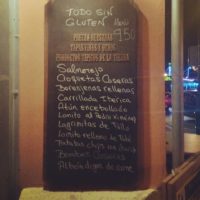 TODO SIN
GLUTEN Menú
9'50
TAPAS
PRODUCTOS TIPICOS DE LA TIERRA
Salmorejo
Croquetas Caseras
Berenjenas rellenas
Carrillada Iberica
Atún encebollado
Lomito al Pedro Ximénez
Lagrimitas de Pollo
Lomito relleno de
Patatas chips
Bombas Caseras
Albóndigas de carne